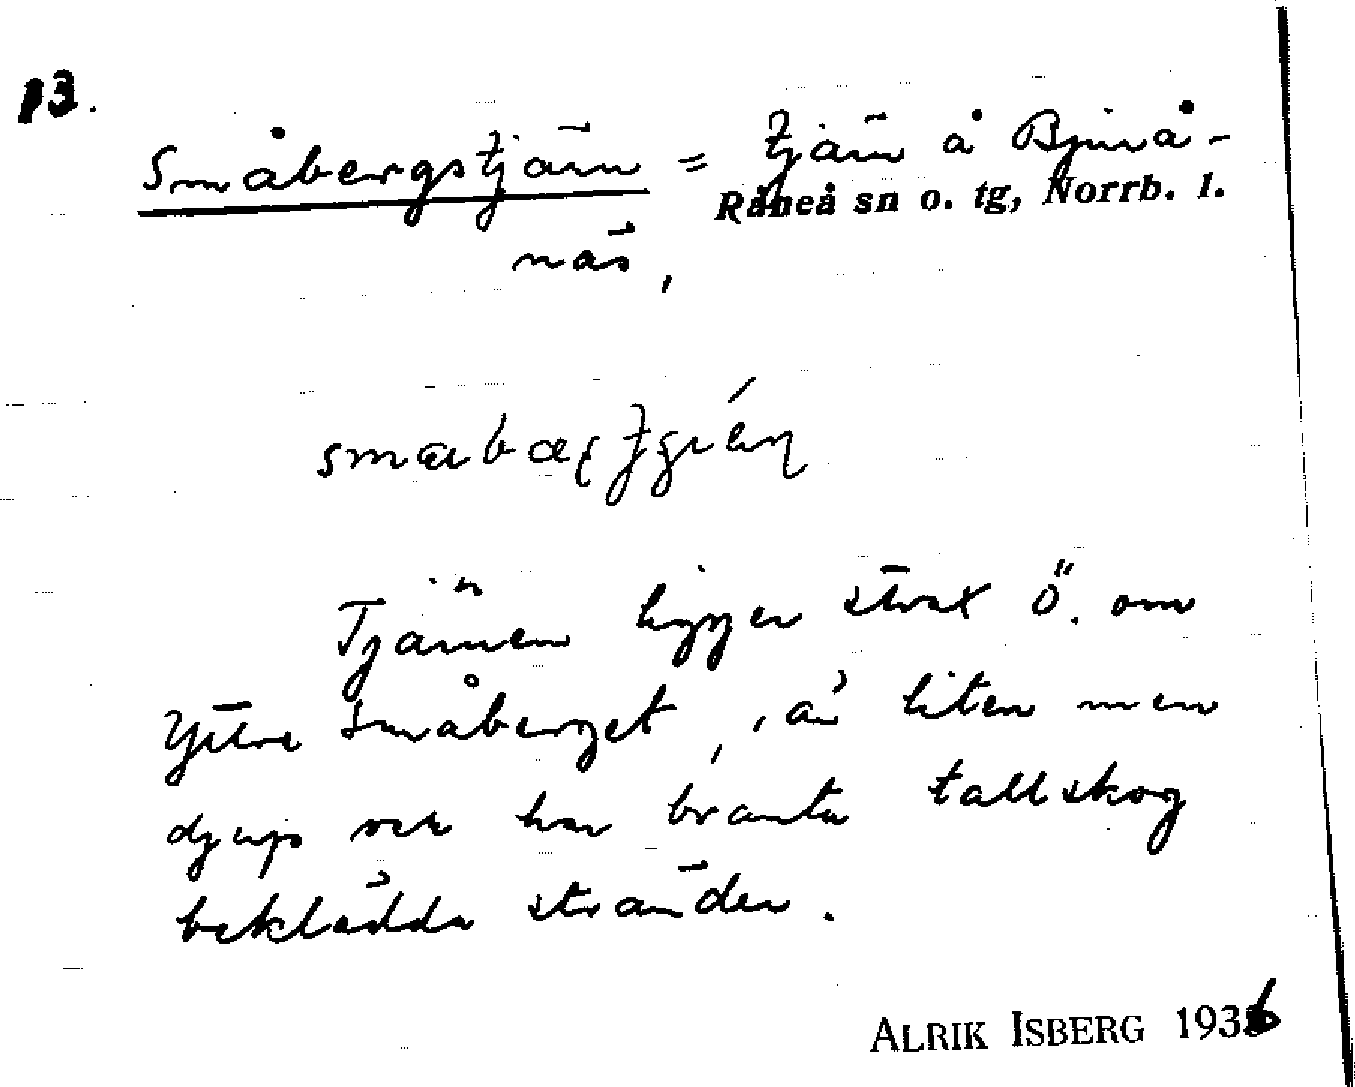 13.
Småbergstjärn = tjärn å Bjurå-
Råneå sn o. tg, Norrb. l.
näs,
Tjärnen ligger strax Ö. om
Yttre Småberget, är liten men
djup och har branta tallskog
beklädda stränder.
ALRIK ISBERG 1936